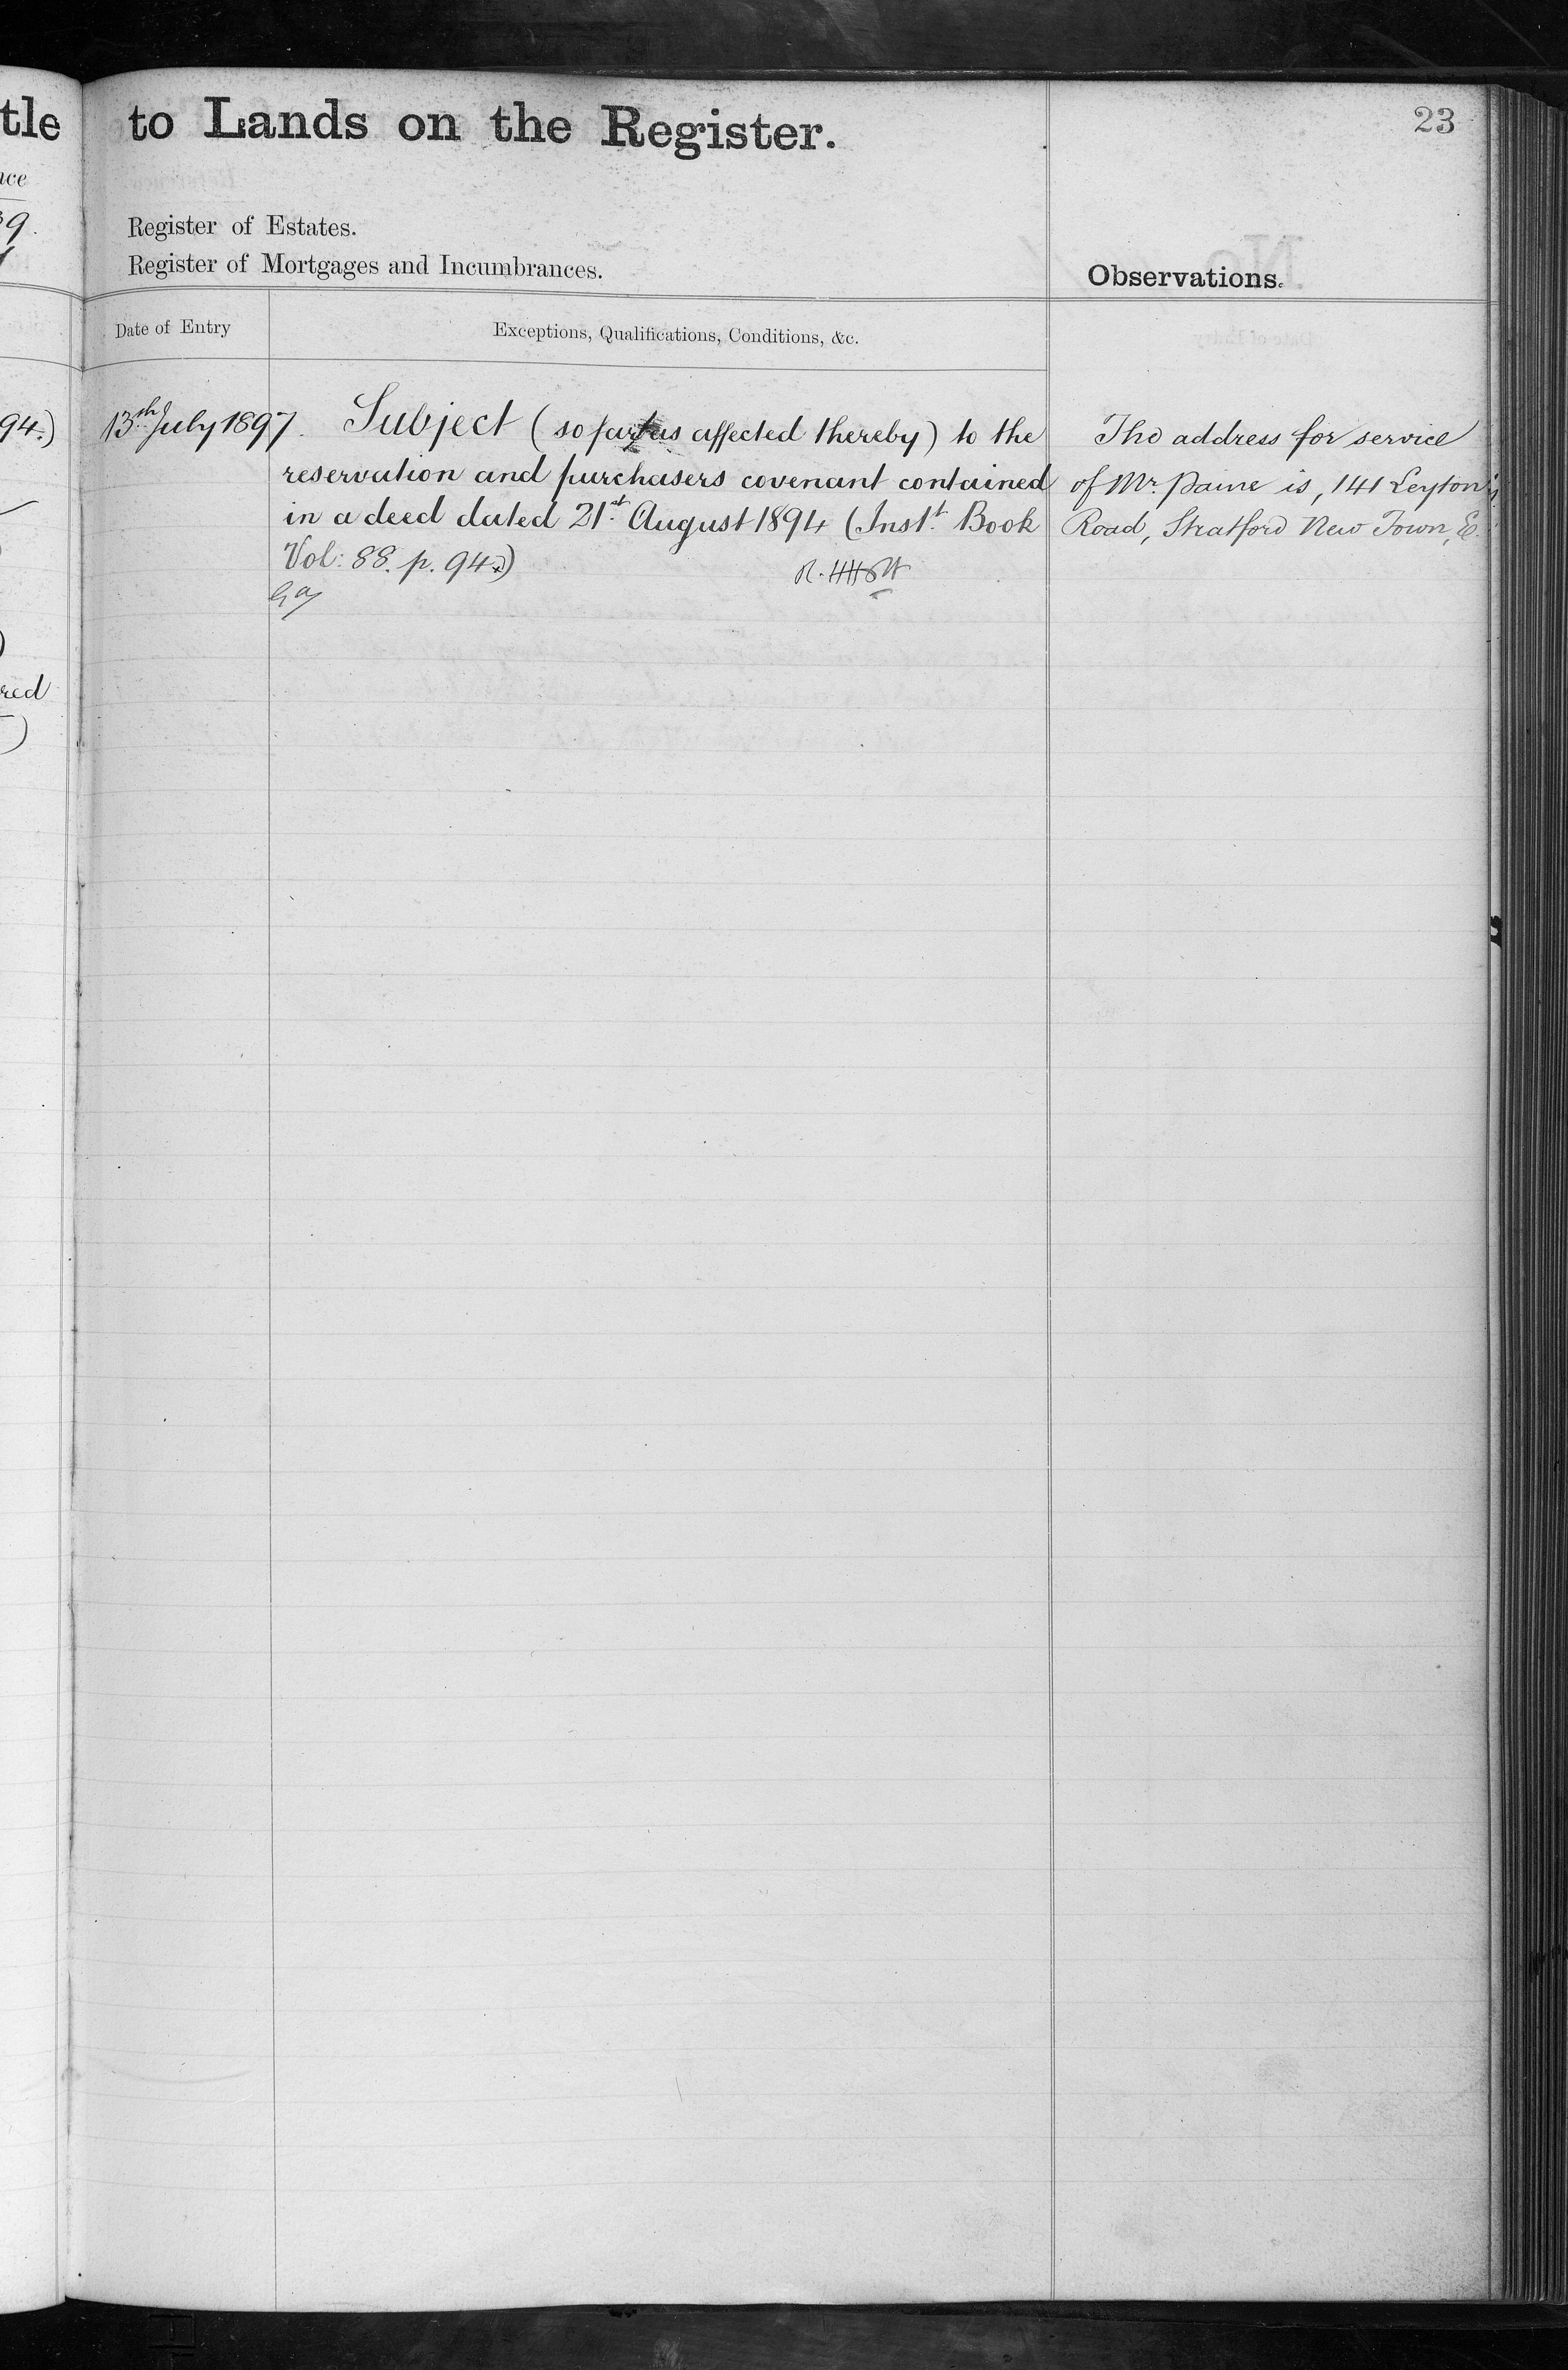 tle to Lands on the Register.
23
Register of Estates.
Register of Mortgages and Incumbrances.
Observations.
Date of Entry
Exceptions, Qualifications, Conditions, &c.
94.)
13th July 1897. Subject (so far as affected thereby) to the
reservation and purchasers covenant contained
in a deed dated 21st August 1894 (Inst. Book
Vol: 88. p. 94.)
The address for service
of Mr. Paine is, 141 Leyton
Road, Stratford New Town, E.
red